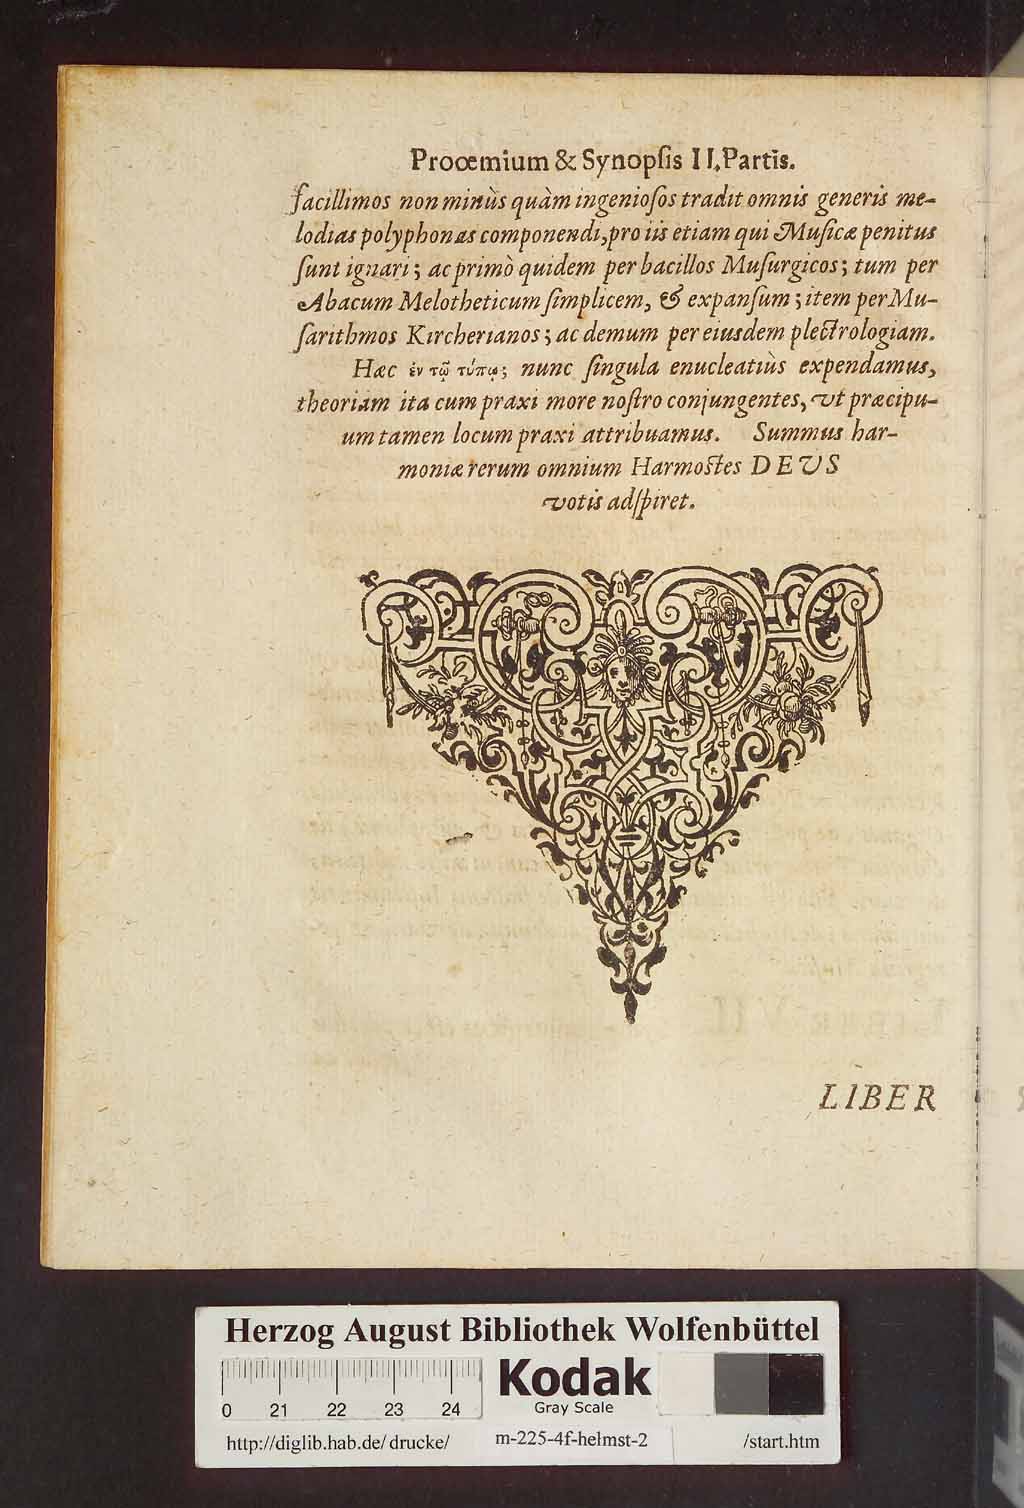 Prooemium & Synopſis II. Partis.
facillimos non minùs quàm ingenioſos tradit omnis generis me-
lodias polyphonas componendi, pro iis etiam qui Muſicæ penitus
ſunt ignari; ac primò quidem per bacillos Muſurgicos; tum per
Abacum Melotheticum ſimplicem, & expanſum; item per Mu-
ſarithmos Kircherianos; ac demum per eiusdem plectrologiam.
Hæc ἐν τῷ τύπῳ; nunc ſingula enucleatiùs expendamus,
theoriam ita cum praxi more noſtro conjungentes, vt præcipu-
um tamen locum praxi attribuamus. Summus har-
moniæ rerum omnium Harmostes DEVS
votis adſpiret.
LIBER
Herzog August Bibliothek Wolfenbüttel
Kodak
Gray Scale
0 21 22 23 24
http://diglib.hab.de/drucke/ m-225-4f-helmst-2 /start.htm